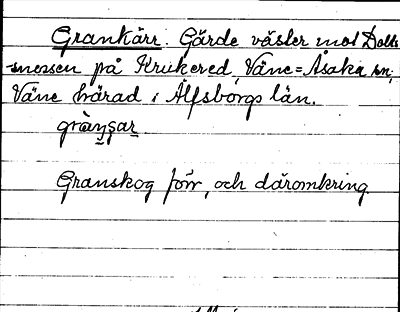 Grankärr. Gärde väster mot Dalbo-
mossen på Krukered, Väne=Åsaka sn,
Väne härad i Älfsborgs län.
grànsar
Granskog förr, och däromkring.